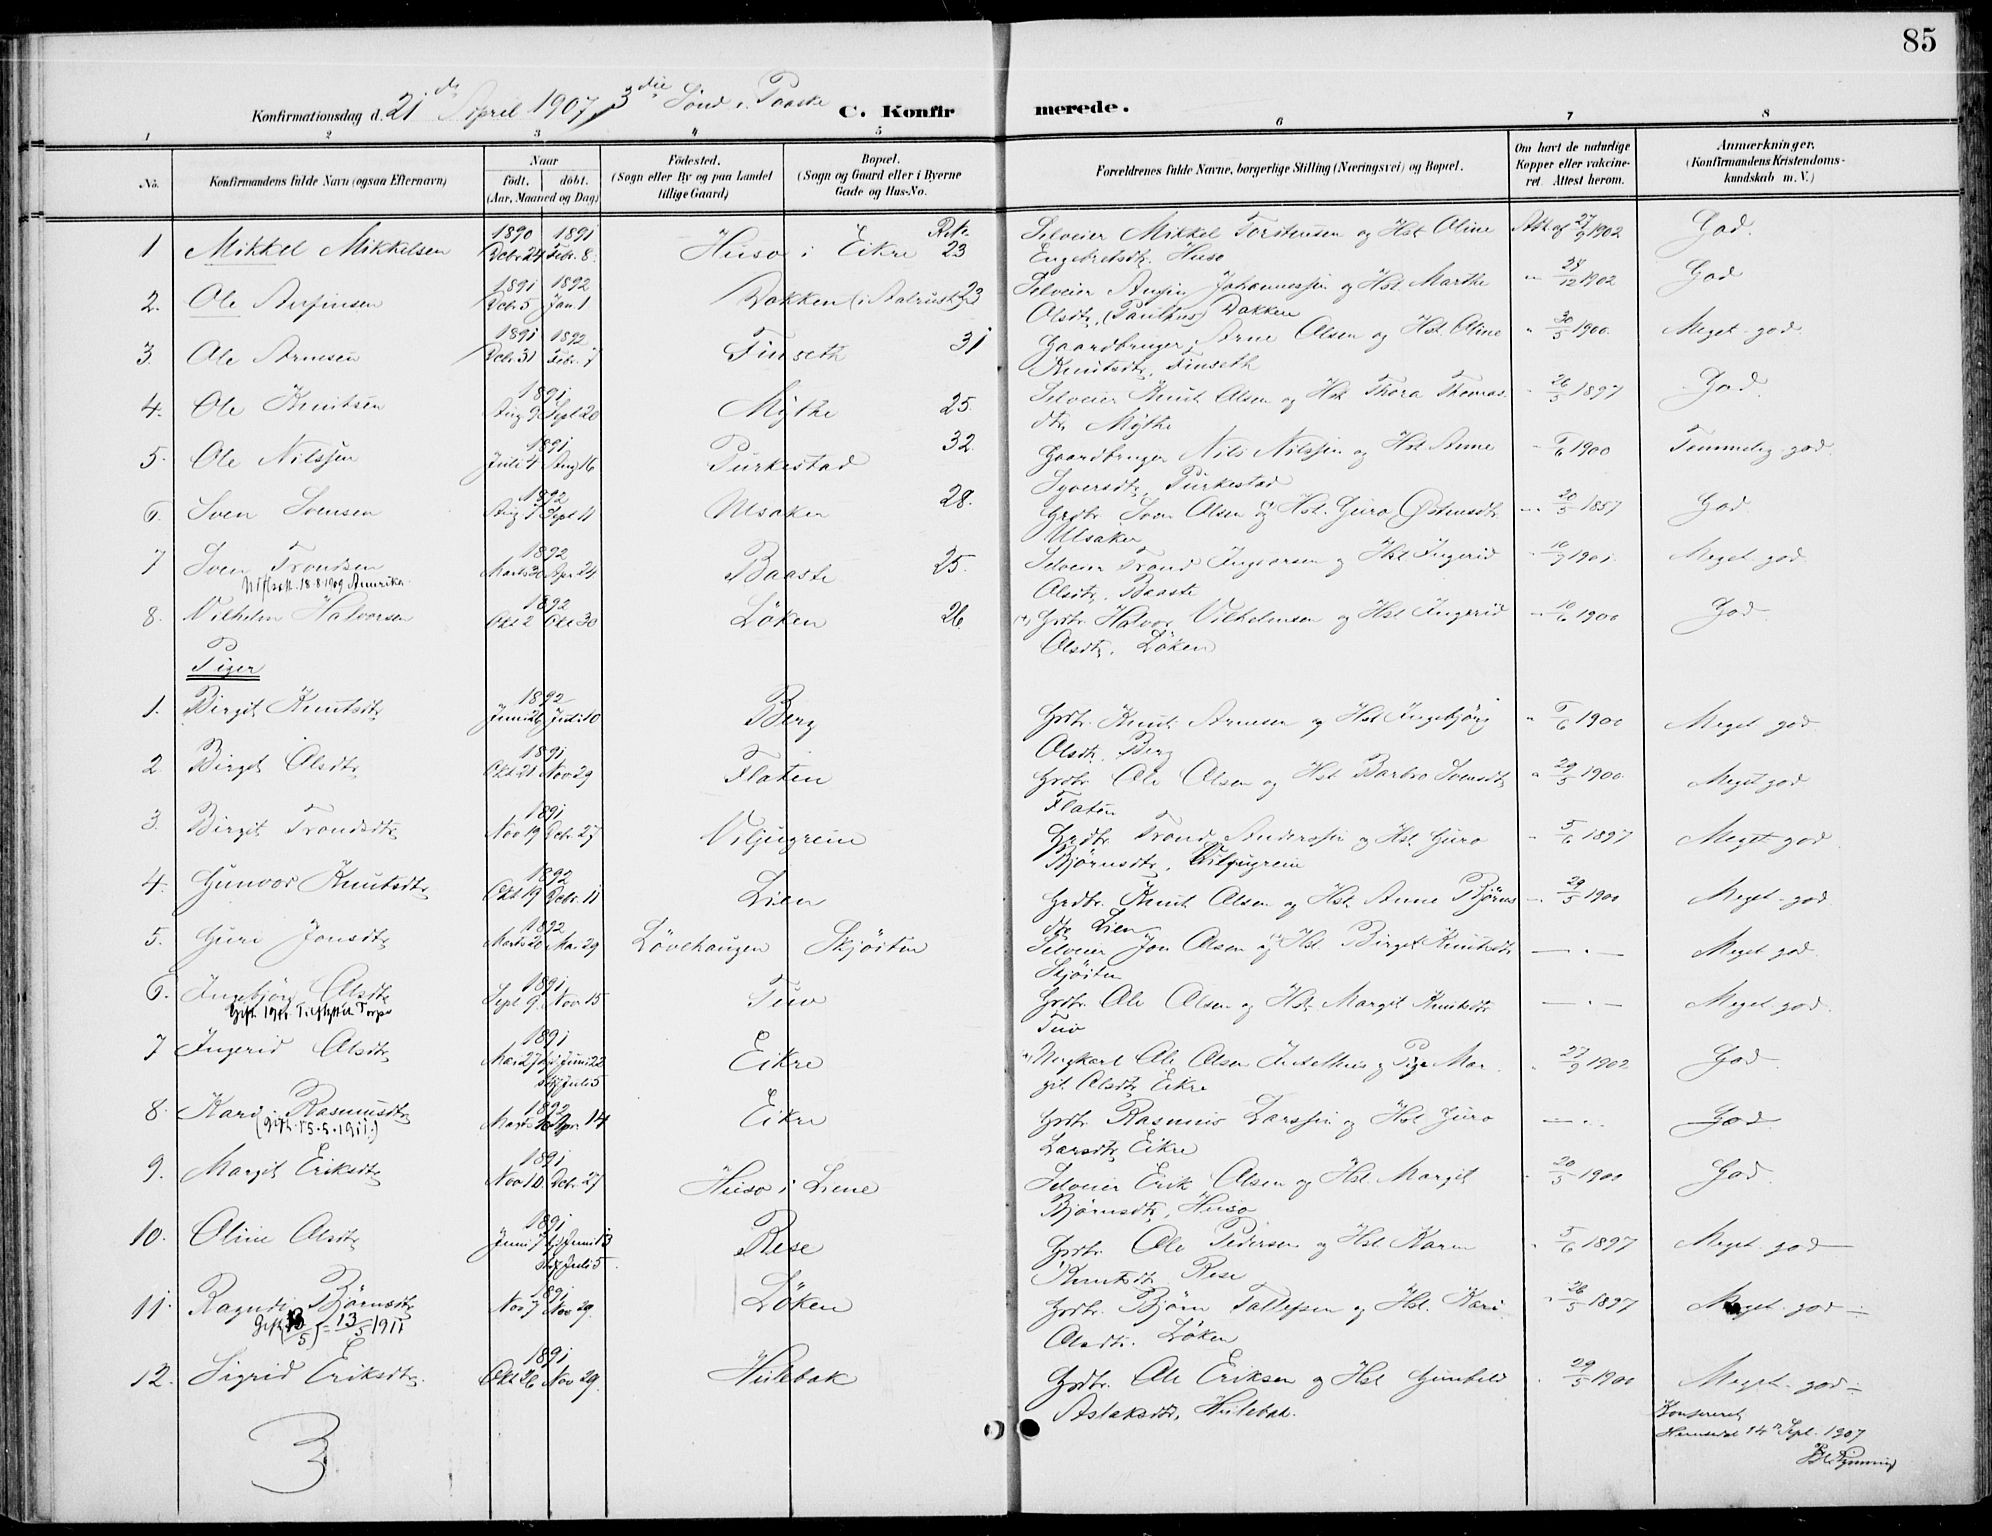 85
Konfirmationsdag d. 21de April 1907, 3die Sönd. i Paaske C. Konfirmerede.
1 2 3 4 5 6 7 8
No. Konfirmandens fulde Navn (ogsaa Efternavn) Naar født, døbt. (Aar, Maaned og Dag) Födested. (Sogn eller By og paa Landet tillige Gaard) Bopæl. (Sogn og Gaard eller i Byerne Gade og Hus-No. Forældrenes fulde Navne, borgerlige Stilling (Næringsvei) og Bopæl. Om havt de naturlige Kopper eller vakcineret. Attest herom. Anmærkninger. (Konfirmandens Kristendomskundskab m. V.)
1 Mikkel Mikkelsen 1890 Decbr. 24 1891 Febr. 8. Huso i Eikre 23 Selveier Mikkel Torstensen og Hst. Oline Att. af 27/9 1902 God.
Engebretsdtr. Huso
2. Ole Arfinsen 1891 Decbr. 5 1892 Jan. 1 Bakken 23 Selveier Johannessen og Hst. Marthe " 28/12 1902 God
Olsdtr. Bakken
3. Ole Arnesen 1891 Decbr. 31 1892 Febr. 7 Finseth 31 Gaardbruger Arne Olsen og Hst. Oline " 30/5 1900. Meget god
Knutsdtr, Finseth
4. Ole Knutsen 1891 Aug 9 Sept 20 Mythe 25. Selveier Knut Olsen og Hst. Thora Thomas- 26/5 1897 God.
dtr. Mythe
5. Ole Nilssen 1891 Juli 4 Aug 16 Turkestad 32. Gaardbruger Nils Nilssen og Hst. Anne 5/6 1900 Temmelig god.
Syversdtr, Turkestad
6. Sven Svensen 1892 Aug 7 Sept 11 Ulsaker 28. Grdbr. Sven Olsen og Hst. Guro Østensdtr. 20/5 1857 God.
Ulsaker
7 Sven Trondsen 1892 Marts 26 Apr. 24 Baaste 25. Selveier Trond og Hst. Ingerid 10/9 1901. Meget god
Utflatt. 18-8 1909 Amerika. Olsdtr. Baaste
8. Vilhelm Halvorsen 1892 Okt 2 Okt 30 Löken 26. Grdbr. Halvor Vilhelmsen og Hst. Ingerid 10/6 1900 God
Olsdtr. Löken
Piger
1. Birgit Knutsdtr. 1892 Juni 26 Juli 10 Berg Grdbr. Knut Arnesen og Hst. Ingebjörg " 5/6 1900 Meget god
Olsdtr. Berg
2 Birget Olsdtr. 1891 Okt 21 Nov 29 Flaten Grdbr. Ole Olsen og Hst. Barbro Svensdtr. " 29/5 1900 Meget god
Flaten
3. Birgit Trondsdtr. 1891 Nov 19 Decbr. 27 Viljugrein Grdbr. Trond Anderssen og Hst. Guro 5/6 1897 Meget god.
Björnsdtr, Viljugrein
4. Gunvor Knutsdtr. 1892 Okt 19 Decbr. 11 Lien Grdbr. Knut Olsen og Hst. Anne Björns 29/5 1900 Meget god
dtr. Lien
5. Guri Jonsdtr. 1892 Marts 20 Mai 29 Lövehaugen Skjöiten Selveier Jon Olsen og Hst. Birget Knutsdtr. — " — Meget god
Skjöiten
6. Ingebjörg Olsdtr. 1891 Sept 9. Nov 15 Tuv Grdbr. Ole Olsen og Hst. Margit Knutsdtr. — " — Meget god.
Tuv
7 Ingerid Olsdtr. 1891 Mai 27 Juni 22 Eikre Ungkarl Ole Olsen og Pige Mar- " 27/9 1902 God
Juli 5 git Olsdtr. Eikre
8. Kari Rasmusdtr. 1892 Marts Apr. 14 Eikre Grdbr. Rasmus Larssen og Hst. Guro — " — God
(gift 15-5-1911.) Larsdtr. Eikre
9. Margit Eriksdtr. 1891 Nov 10. Decbr. 27 Huso i Liene Selveier Erik Olsen og Hst. Margit 20/5 1900 God
Björnsdtr, Huso
10. Oline Olsdtr. 1891 Juni 7 Juni 13 Rese Grdbr. Ole Pedersen og Hst. Karen 5/6 1897 Meget god —
Juli 5. Knutsdtr. Rese
11. Ragndi Björnsdtr. 1891 Nov 7 Nov 29. Löken Grdbr. Björn Tollefsen og Hst. Kari 26/5 1897 Meget god —
Gift 13/5 1911 Olsdtr. Löken
12. Sigrid Eriksdtr. 1891 Okt 26 Nov 29. Hulebak Grdbr. Ole Eriksen og Hst. Gunhild 29/5 1900 Meget god —
Aslaksdtr, Hulebak.
3
Konfereret,
Hemsedal 14de Sept. 1907